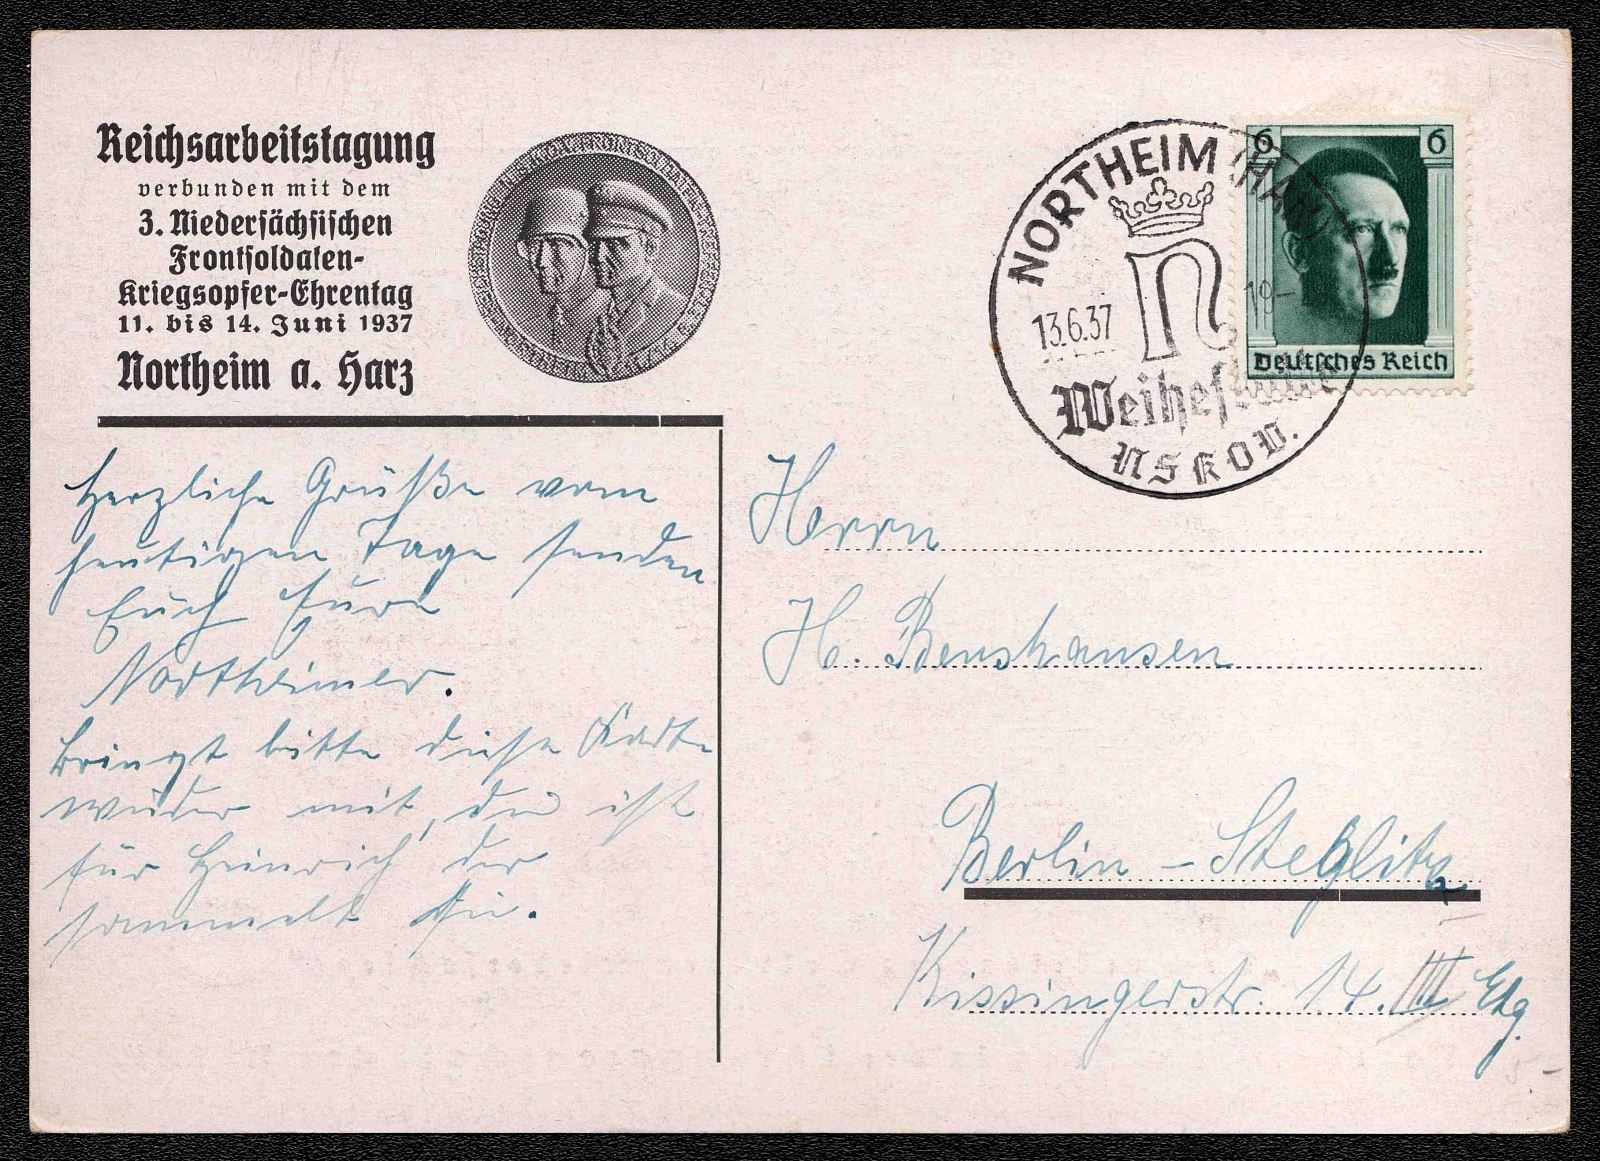 Reichsarbeitstagung
verbunden mit dem
3. Niedersächsischen
Frontsoldaten-
Kriegsopfer-Ehrentag
11. bis 14. Juni 1937
Northeim a. Harz
NORTHEIM (HAN)
13.6.37 19-
n
Weihestätte
NSKOV.
6 6
Deutsches Reich
Herzliche Grüße vom
heutigen Tage senden
Euch Eure
Northeimer.
Bringt bitte diese Karte
wieder mit, die ist
für Heinrich, der
sammelt sie.
Herrn
H. Benshausen
Berlin-Steglitz
Kissingerstr. 14. III Etg.
5.-